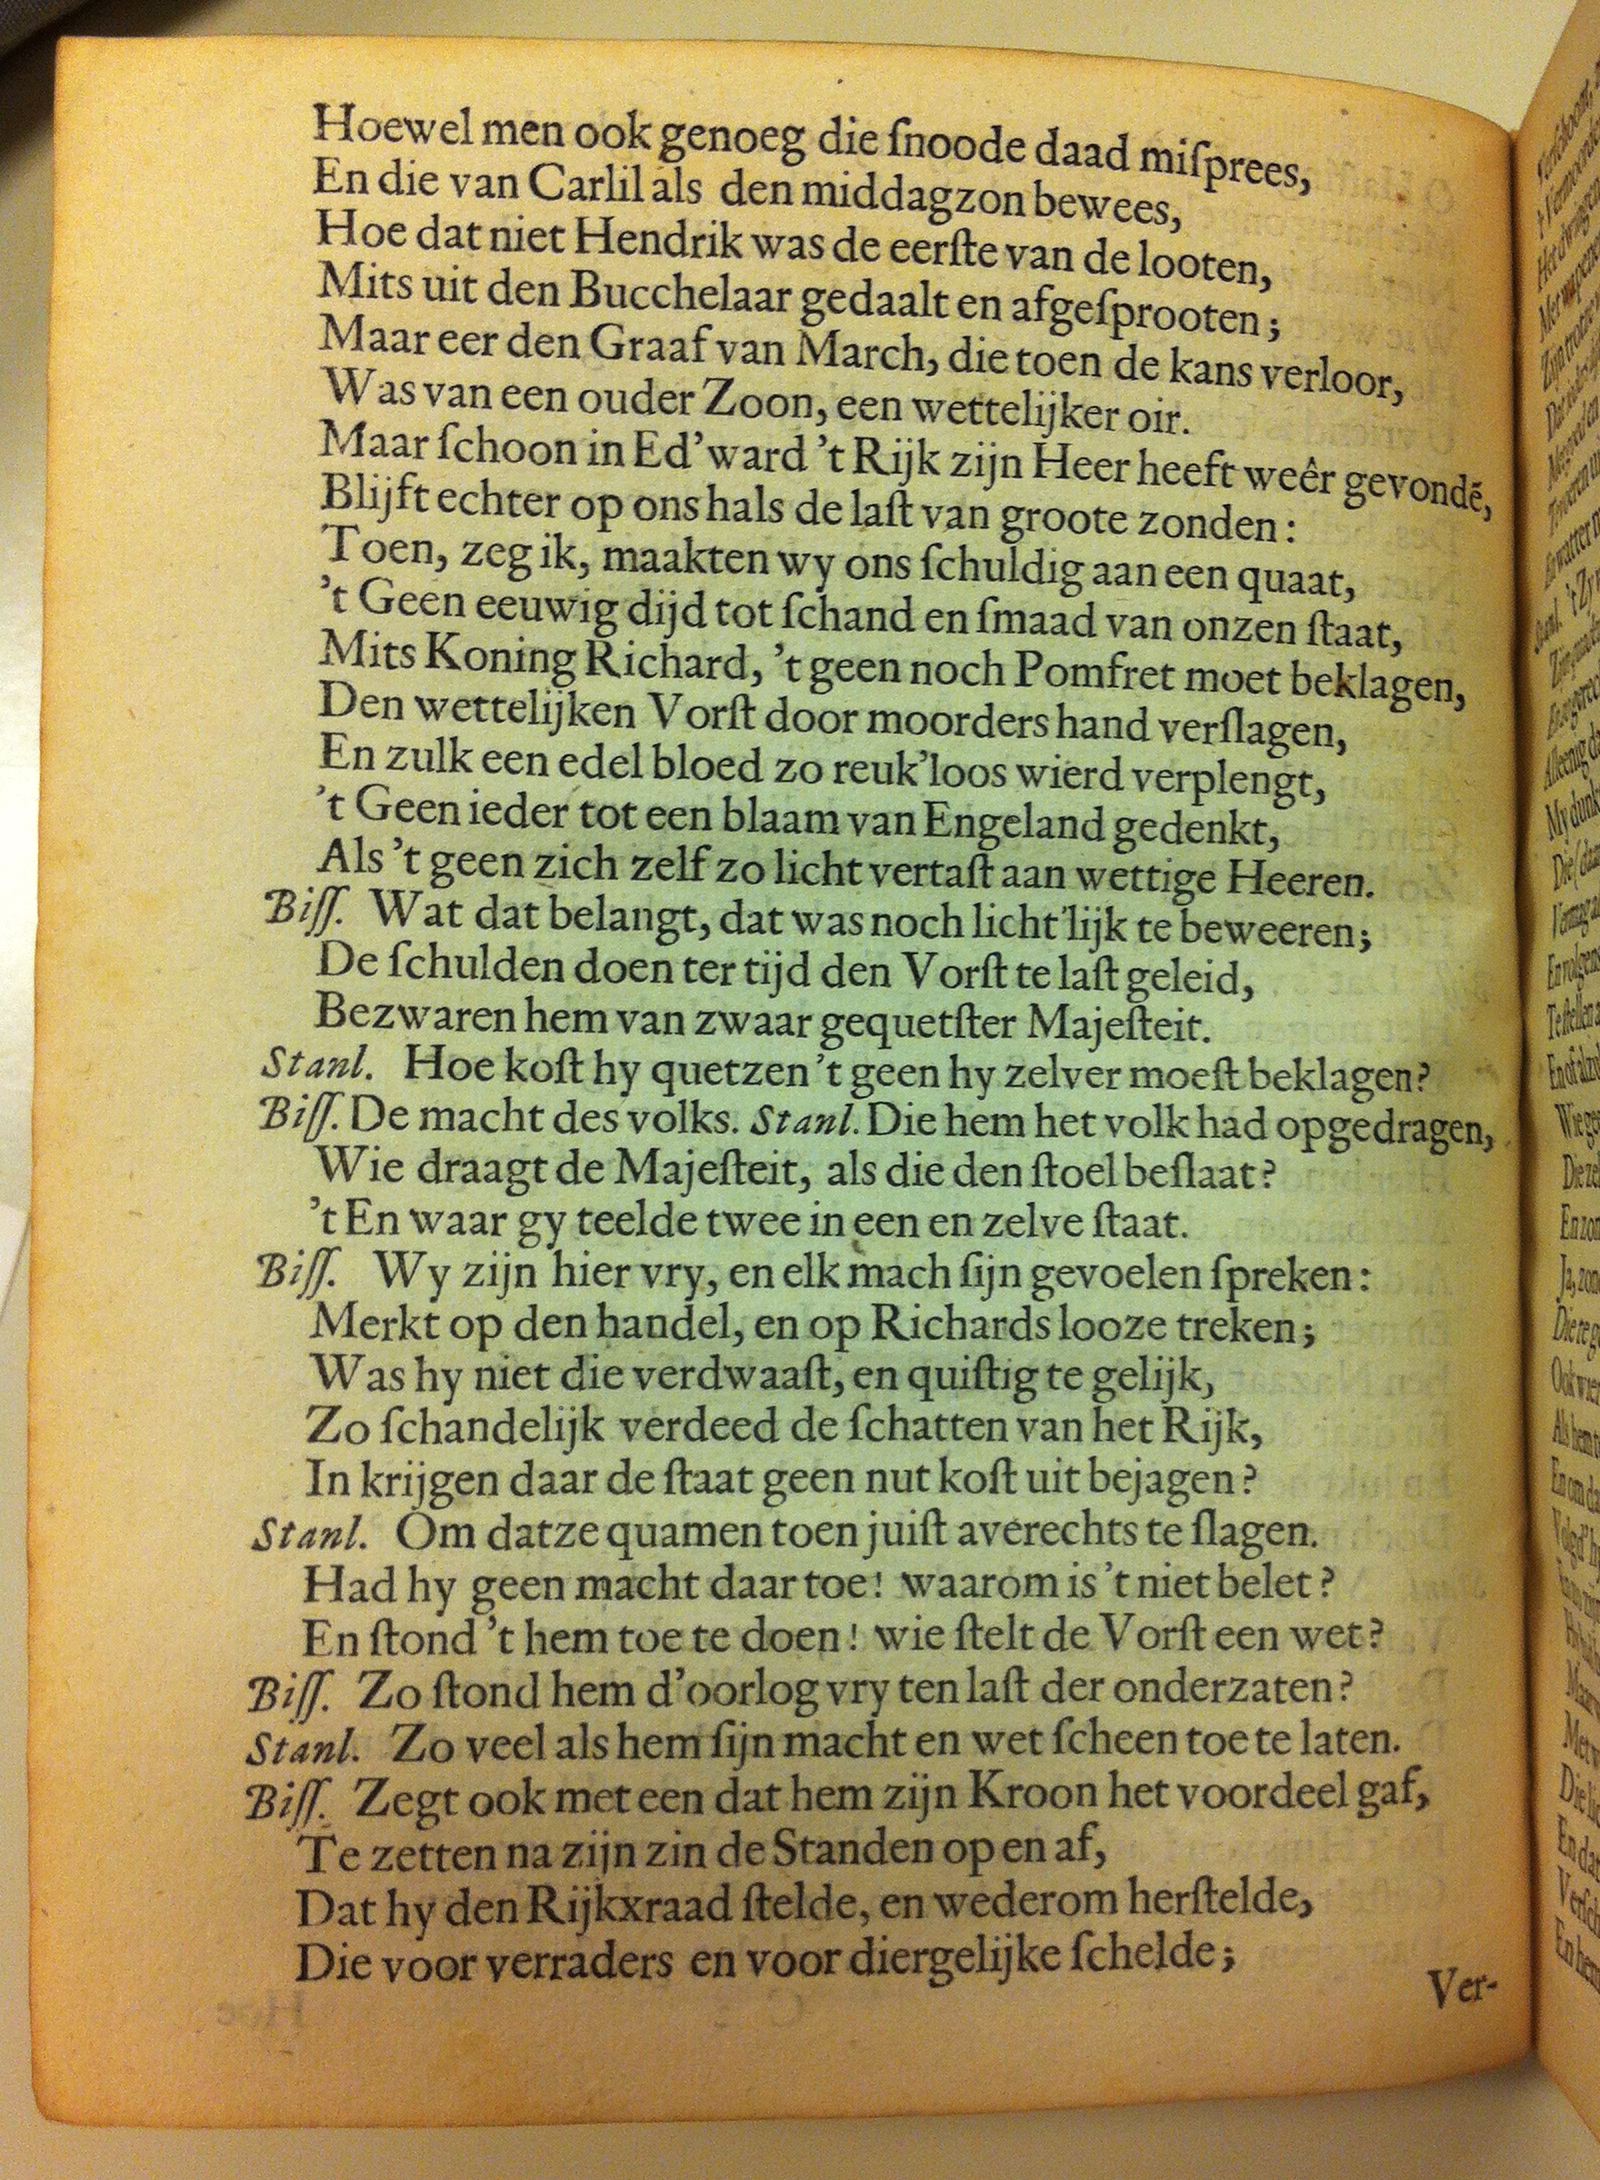 Hoewel men ook genoeg die ſnoode daad miſprees,
En die van Carlil als den middagzon bewees,
Hoe dat niet Hendrik was de eerſte van de looten,
Mits uit den Bucchelaar gedaalt en afgeſprooten;
Maar eer den Graaf van March, die toen de kans verloor,
Was van een ouder Zoon, een wettelijker oir.
Maar ſchoon in Ed'ward 't Rijk zijn Heer heeft weêr gevondē,
Blijft echter op ons hals de laſt van groote zonden:
Toen, zeg ik, maakten wy ons ſchuldig aan een quaat,
't Geen eeuwig dijd tot ſchand en ſmaad van onzen ſtaat,
Mits Koning Richard, 't geen noch Pomfret moet beklagen,
Den wettelijken Vorſt door moorders hand verſlagen,
En zulk een edel bloed zo reuk'loos wierd verplengt,
't Geen ieder tot een blaam van Engeland gedenkt,
Als 't geen zich zelf zo licht vertaſt aan wettige Heeren.
Biſſ. Wat dat belangt, dat was noch licht'lijk te beweeren;
De ſchulden doen ter tijd den Vorſt te laſt geleid,
Bezwaren hem van zwaar gequetſter Majeſteit.
Stanl. Hoe koſt hy quetzen 't geen hy zelver moeſt beklagen?
Biſſ. De macht des volks. Stanl. Die hem het volk had opgedragen,
Wie draagt de Majeſteit, als die den ſtoel beſlaat?
't En waar gy teelde twee in een en zelve ſtaat.
Biſſ. Wy zijn hier vry, en elk mach ſijn gevoelen ſpreken:
Merkt op den handel, en op Richards looze treken;
Was hy niet die verdwaaſt, en quiſtig te gelijk,
Zo ſchandelijk verdeed de ſchatten van het Rijk,
In krijgen daar de ſtaat geen nut koſt uit bejagen?
Stanl. Om datze quamen toen juiſt averechts te ſlagen.
Had hy geen macht daar toe! waarom is 't niet belet?
En ſtond 't hem toe te doen! wie ſtelt de Vorſt een wet?
Biſſ. Zo ſtond hem d'oorlog vry ten laſt der onderzaten?
Stanl. Zo veel als hem ſijn macht en wet ſcheen toe te laten.
Biſſ. Zegt ook met een dat hem zijn Kroon het voordeel gaf,
Te zetten na zijn zin de Standen op en af,
Dat hy den Rijkxraad ſtelde, en wederom herſtelde,
Die voor verraders en voor diergelijke ſchelde;
Ver-